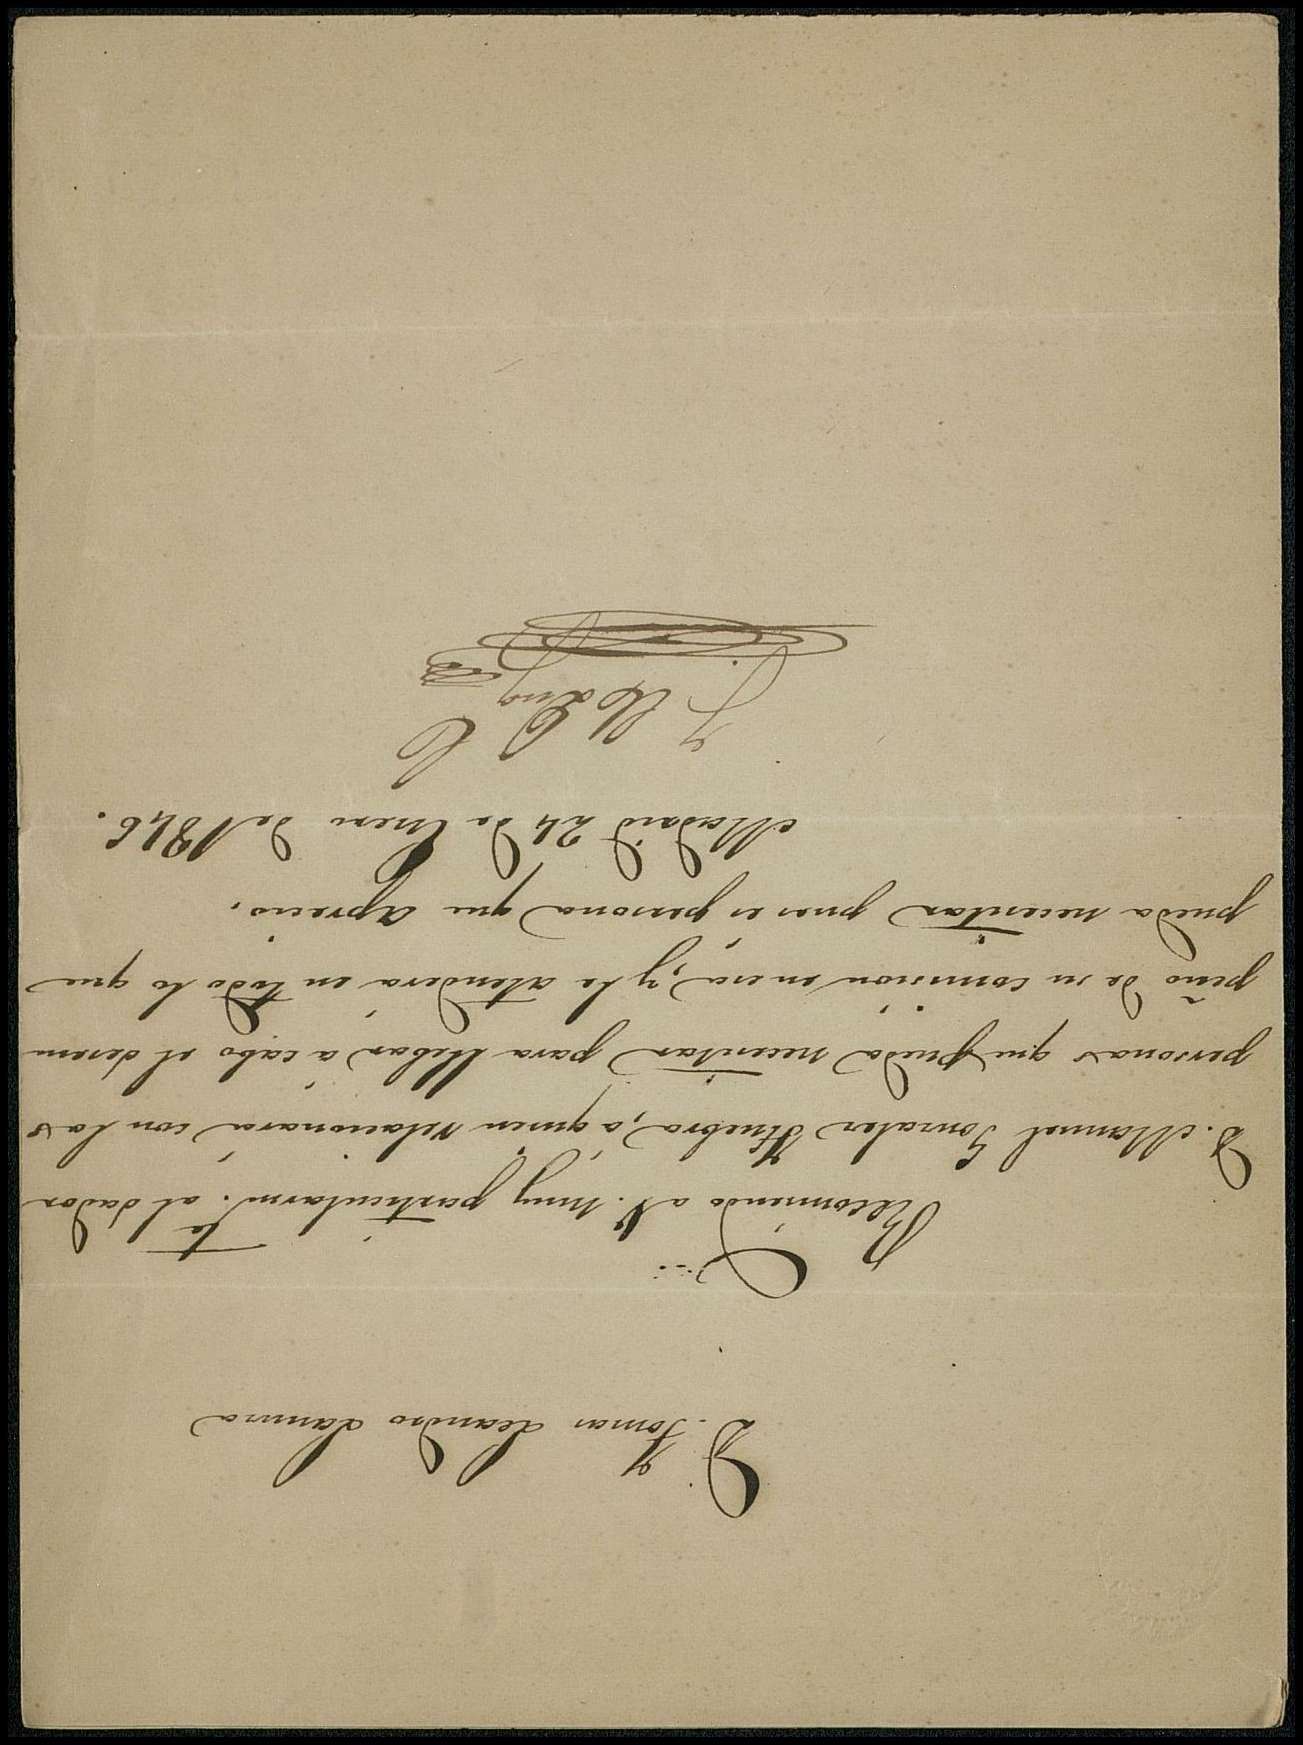 D. Tomas Leandro
Recomiendo a V. muy particularm.te al dador
D. Manuel Gonzalez Huebra, á quien relacionará con las
personas que pueda necesitar para llebar á cabo el desem
peño de su comision en esa, y le atenderá en todo lo que
pueda necesitar pues es persona que aprecio.
Madrid 24 de Enero de 1846.